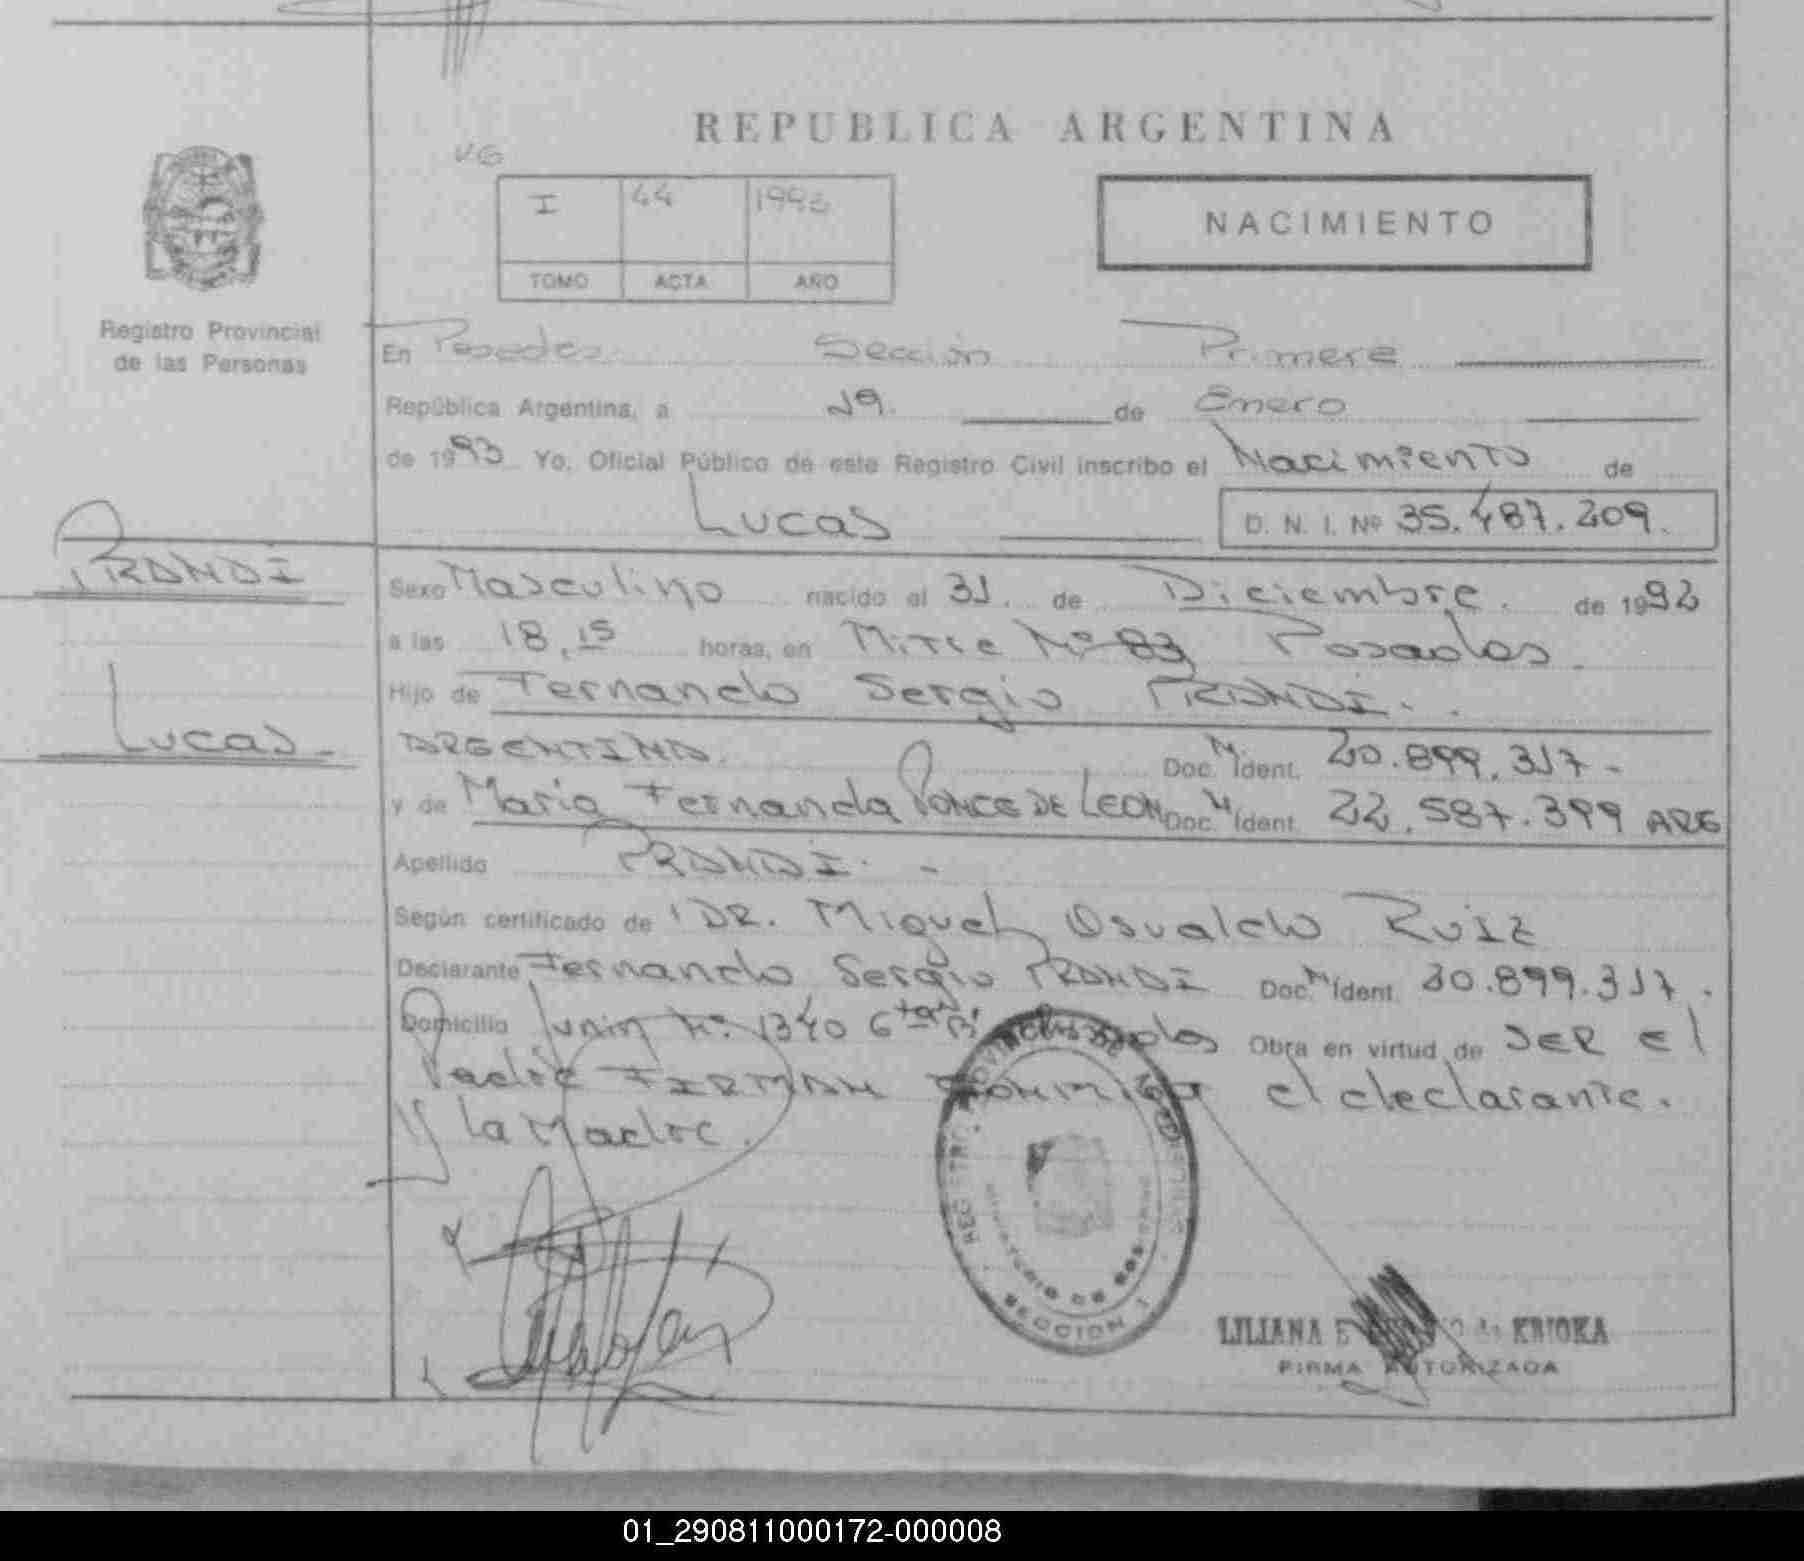 REPUBLICA ARGENTINA
VG
I 44 1993
TOMO ACTA AÑO
NACIMIENTO
Registro Provincial
de las Personas
En Posadas Sección Primera
República Argentina, a 29 de Enero
de 1993 Yo, Oficial Público de este Registro Civil inscribo el Nacimiento de
Lucas D. N. I. Nº 35.487.209.
PRANDI
Sexo Masculino nacido el 31. de Diciembre. de 1992
a las 18,15 horas, en Mitre Nº 83 Posadas.
Hijo de Fernando Sergio PRANDI.
Lucas
ARGENTINO. Doc. N Ident. 20.899.317-
y de Maria Fernanda PONCE DE LEON Doc. N Ident. 22.587.399 ARG
Apellido PRANDI. -
Según certificado de DR. Miguel Osvaldo Ruiz
Declarante Fernando Sergio PRANDI Doc. N Ident. 20.899.317.
Domicilio Junin Nº 1340 6 Obra en virtud de SER El
Padre FIRMAN el declarante.
y La Madre.
SECCION 1
LILIANA KRIOKA
FIRMA AUTORIZADA
01_290811000172-000008